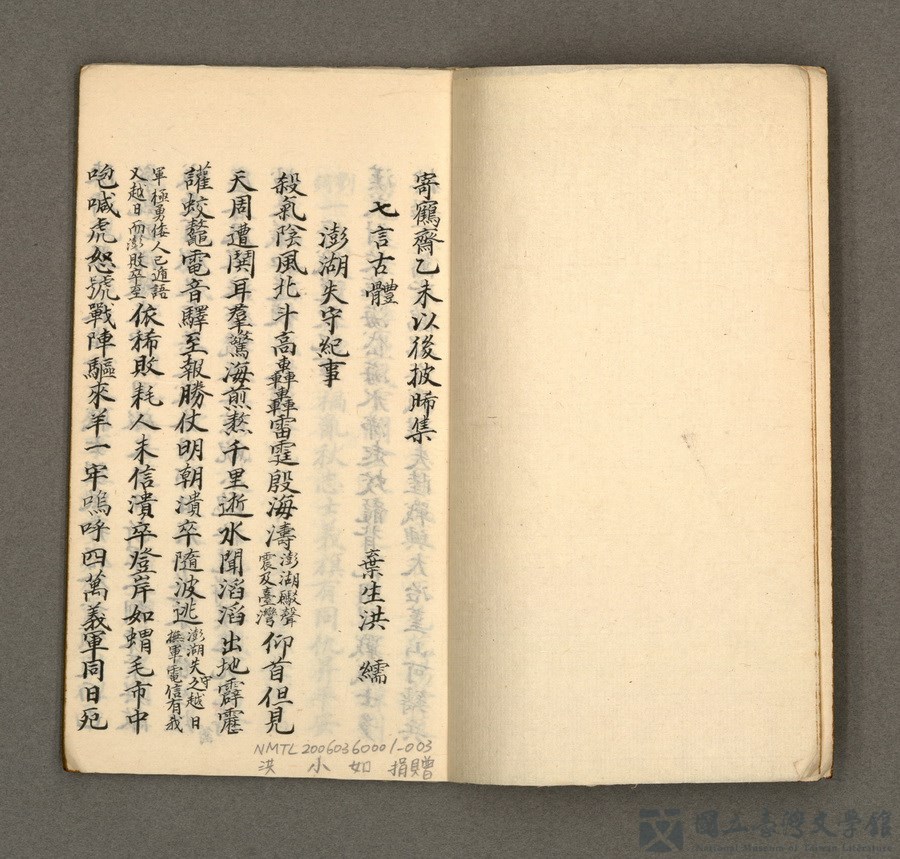 寄鶴齋乙未以後披晞集
七言古體　棄生洪　繻
澎湖失守紀事
殺氣陰風北斗高轟轟雷霆殷海濤澎湖礮聲震及臺灣仰首但見
天周遭鬨耳羣驚海煎熬千里逝水聞滔滔出地霹靂
讙蛟鼇電音驛至報勝仗明朝潰卒隨波逃澎湖失守之越日撫軍電信有我
軍極勇倭人已遁語又越日而澎敗卒至依稀敗耗人未信潰卒登岸如蝟毛市中
咆喊虎怒號戰陣驅來羊一牢嗚呼四萬義軍同日死
NMTL20060360001-003
洪小如捐贈
國立臺灣文學館
National Museum of Taiwan Literature